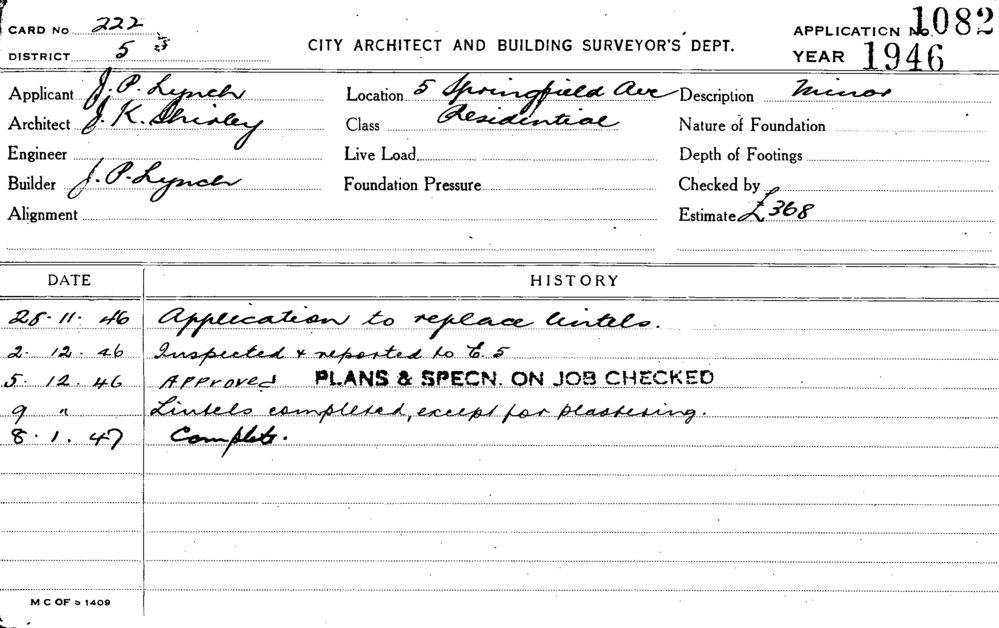 CARD No 222
DISTRICT 5
CITY ARCHITECT AND BUILDING SURVEYOR'S DEPT.
APPLICATION No. 1082
YEAR 1946
Applicant J. P. Lynch
Location 5 Springfield Ave
Description Minor
Architect J. K. Shirley
Class Residential
Nature of Foundation
Engineer
Live Load
Depth of Footings
Builder J. P. Lynch
Foundation Pressure
Checked by
Alignment
Estimate £368
DATE HISTORY
28. 11. 46 Application to replace lintels.
2. 12. 46 Inspected & reported to E. 5
5. 12. 46 Approved PLANS & SPECN. ON JOB CHECKED
9 " Lintels completed, except for plastering.
8. 1. 47 Complete.
M C OF S 1409